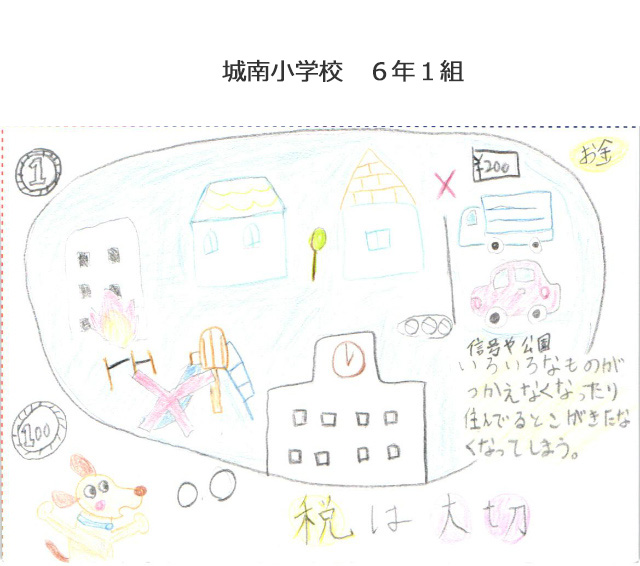 城南小学校　６年１組
1
お金
¥200
信号や公園
いろいろなものが
つかえなくなったり
住んでるとこがきたな
くなってしまう。
100
税は大切